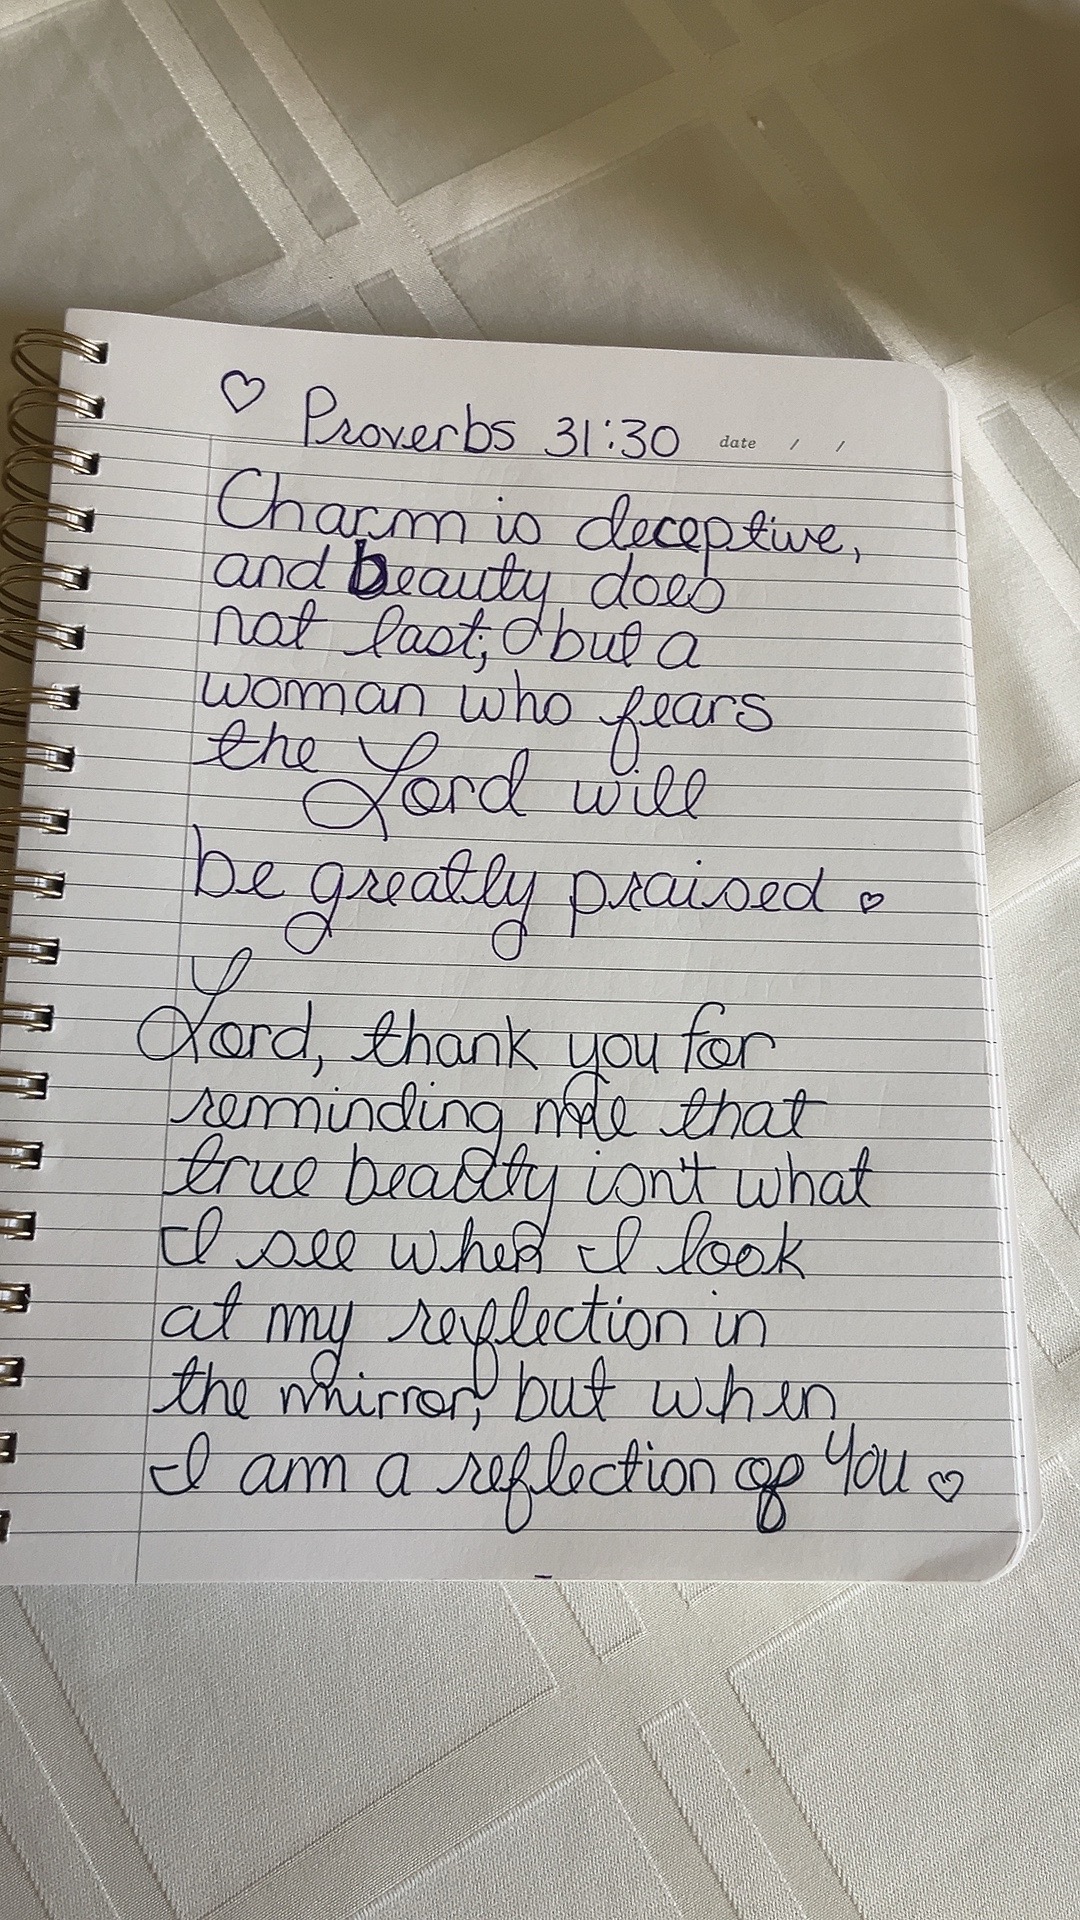 ♡ Proverbs 31:30 date / /
Charm is deceptive,
and beauty does
not last; but a
woman who fears
the Lord will
be greatly praised ♡
Lord, thank you for
reminding me that
true beauty isn't what
I see when I look
at my reflection in
the mirror, but when
I am a reflection of You ♡